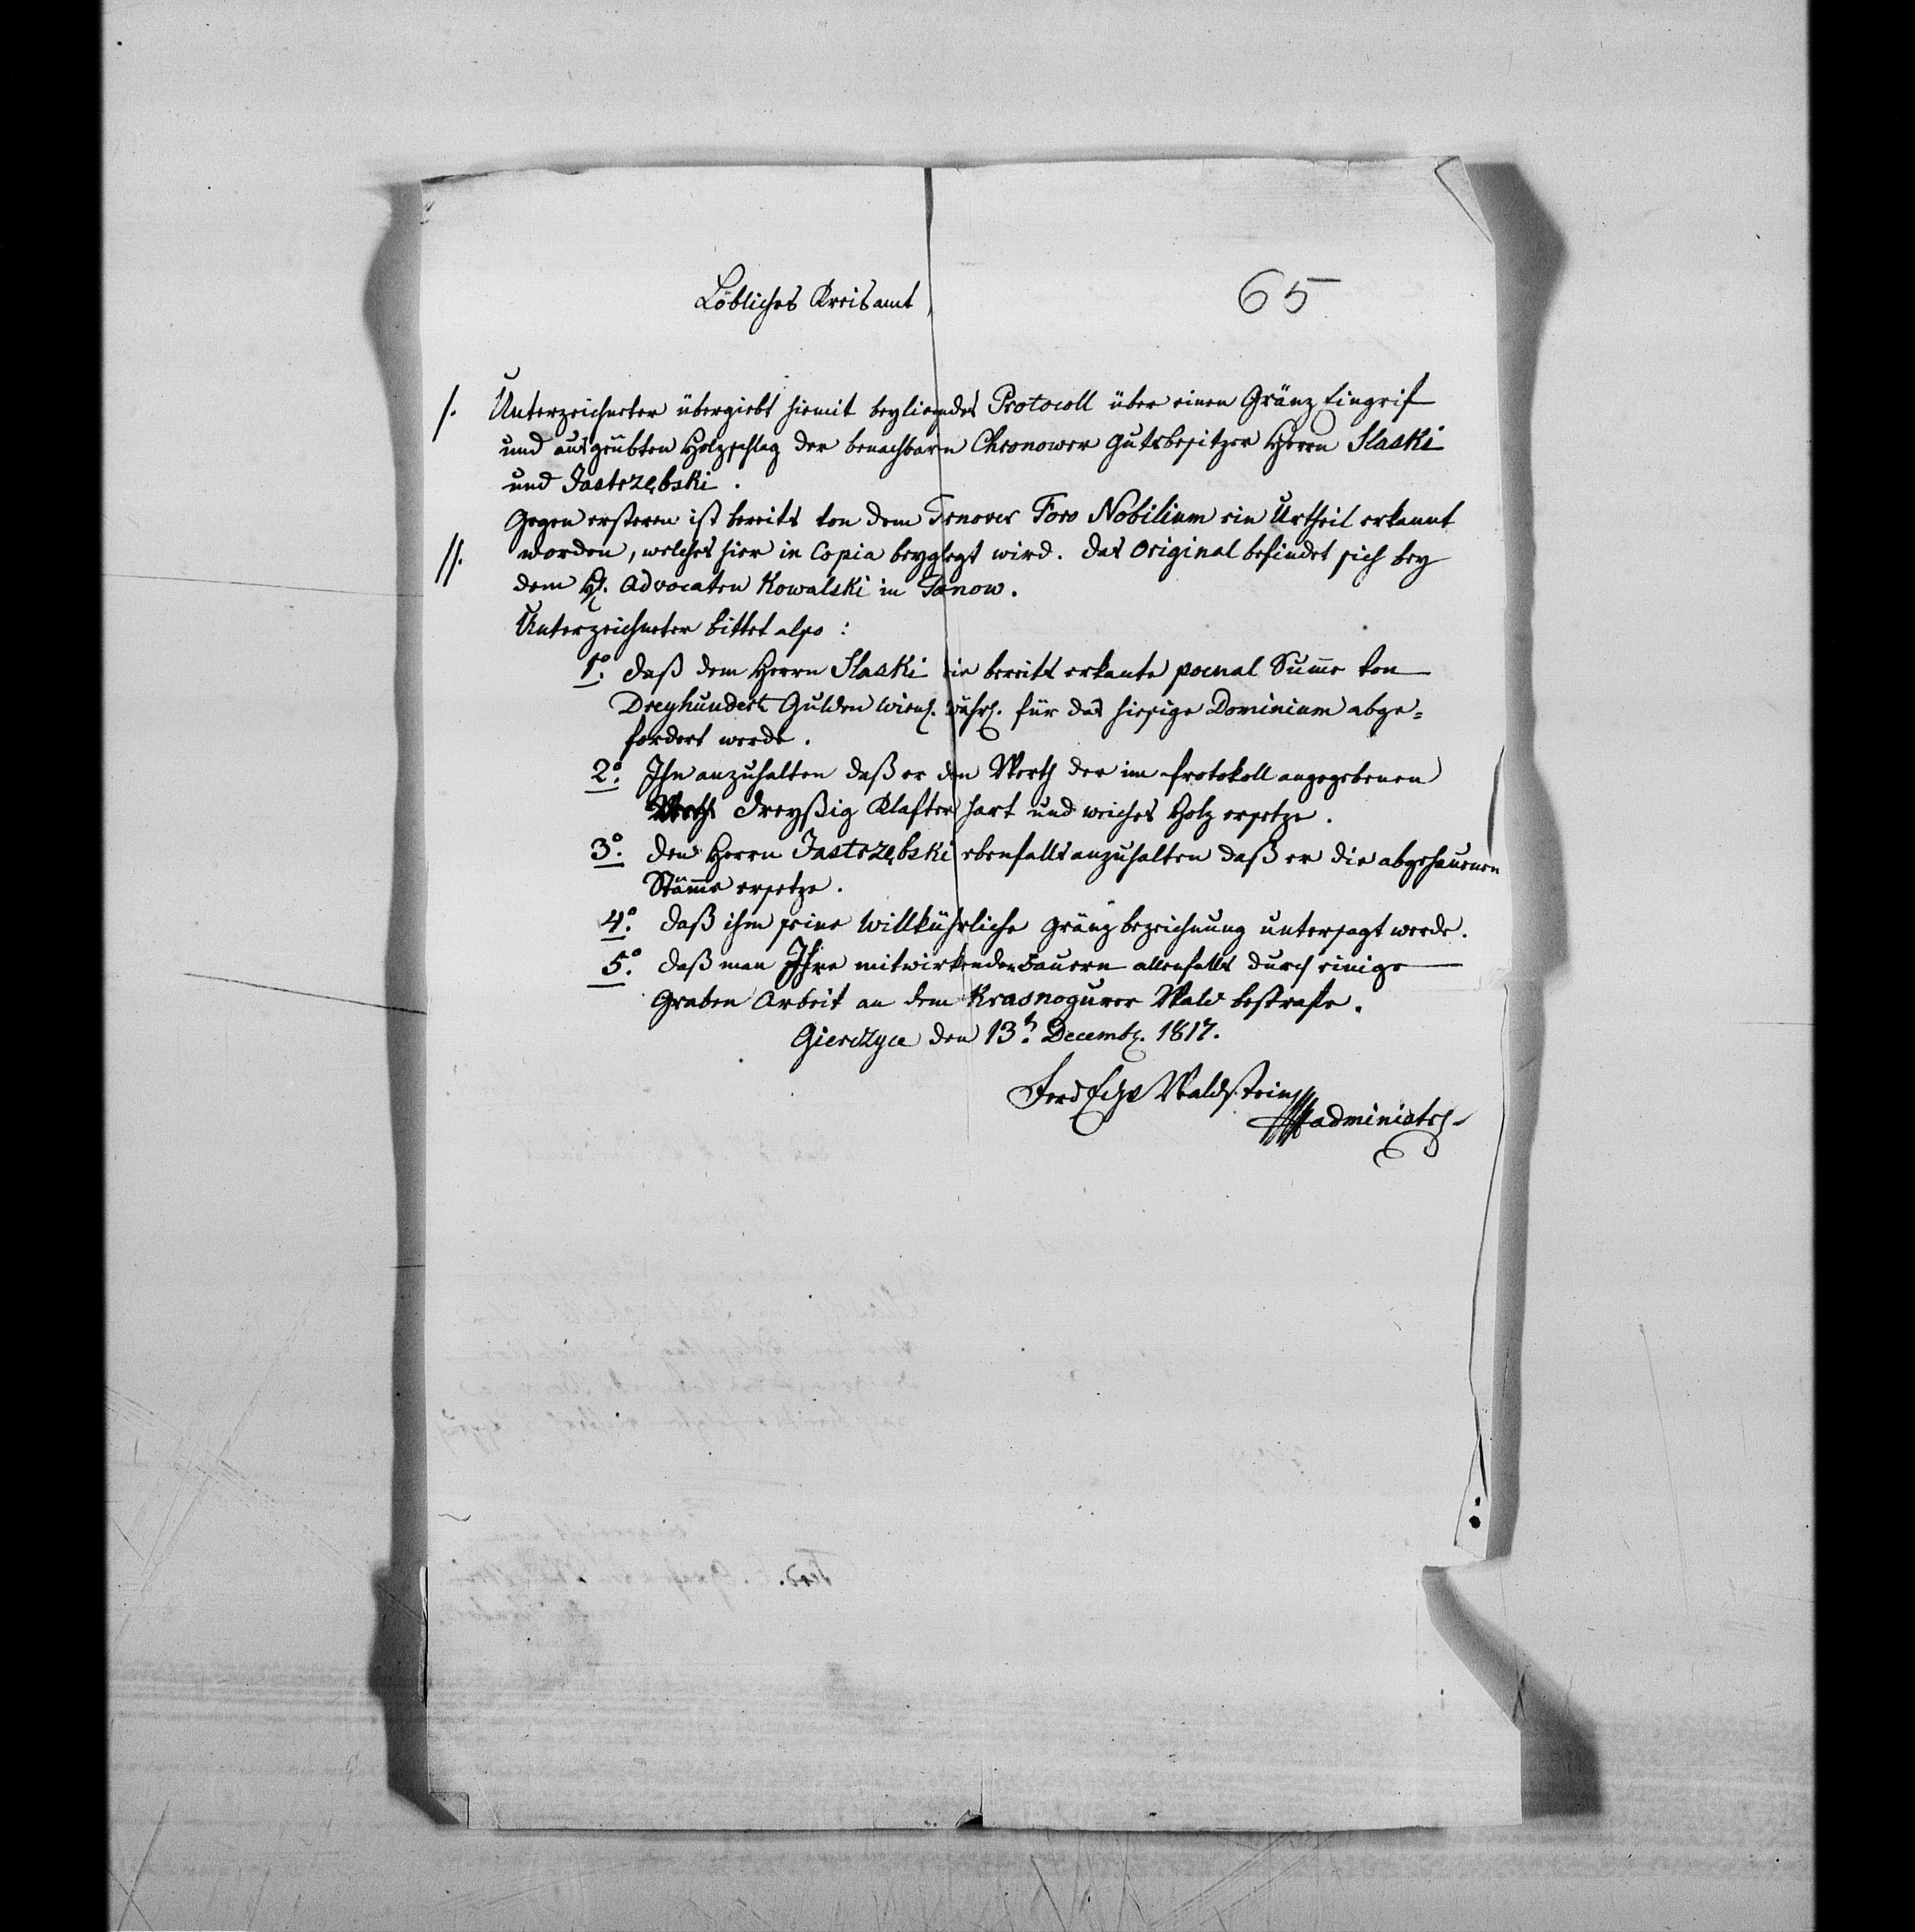 65
Löbliches Kreisamt
/. Unterzeichneter übergiebt hiemit beyliegendes Protocoll über einen Gränz Eingrif
und ausgeübten Holzschlag der benachbarn Chronower Gutsbesitzer Herrn Slaski
und Jastrzębski.
Gegen ersteren ist bereits von dem Trnover Foro Nobilium ein Urtheil erkannt
//. worden, welches hier in Copia beyglegt wird. Das Original befindet sich bey
dem H. Advocaten Kowalski in Tanow.
Unterzeichneter bittet also:
1o. daß dem Herrn Slaski die bereits erkante poenal Sum̅e von
Dreyhundert Gulden Wien. Währ. für das hiesige Dominium abge=
fordert werde.
2o. Ihn anzuhalten daß er den Werth der im Protokoll angegebenen
dreyßig Klafter hart und weiches Holz ersetze.
3o. den Herrn Jastrzębski ebenfalls anzuhalten daß er die abgehauenen
Stäm̅e ersetze.
4o. daß ihm seine willkührliche Gränzbezeichnung untersagt werde.
5o. daß man Ihre mitwirkenden Bauern allenfalls durch einige
Graben Arbeit an dem Krasnogurer Wald bestrafe.
Gierczyce den 13t. Decemb. 1817.
Ferd Waldstein
administr